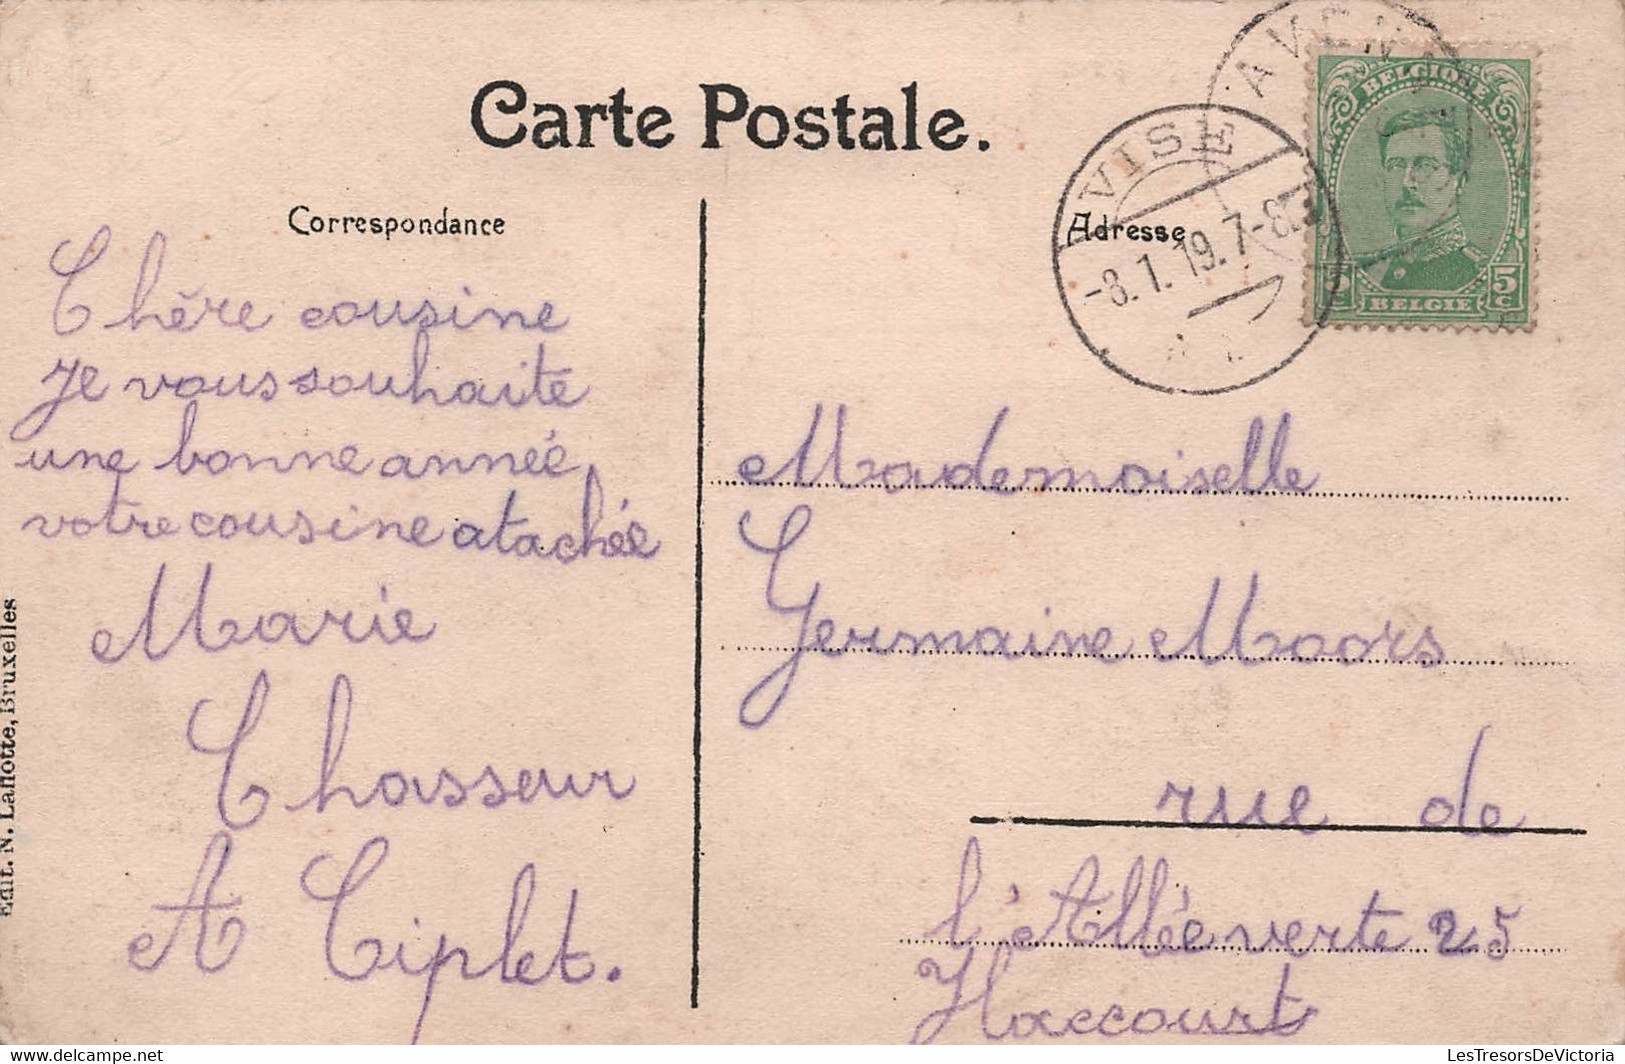 Carte Postale.
Correspondance
Chère cousine
Je vous souhaite
une bonne année
votre cousine atachée
Marie
Chasseur
A Ciplet.
Edit. N. Laflotte, Bruxelles
Adresse
VISE
-8.1.19.7-8
BELGIQUE
5c 5c
BELGIE
Mademoiselle
Germaine Moors
rue de
l'Allée verte 25
Haccourt
LesTresorsDeVictoria
delcampe.net